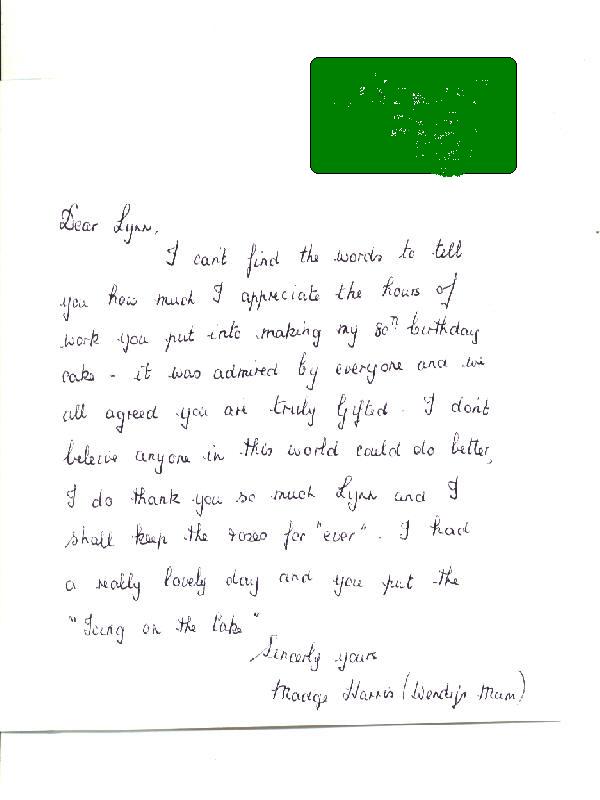 Dear Lynn,
I can't find the words to tell
you how much I appreciate the hours of
work you put into making my 80th birthday
cake - it was admired by everyone and we
all agreed you are truly gifted. I don't
beleive anyone in this world could do better,
I do thank you so much Lynn and I
shall keep the roses for "ever". I had
a really lovely day and you put the
"Icing on the Cake"
Sincerly yours
Madge Harris (Wendy's Mum)